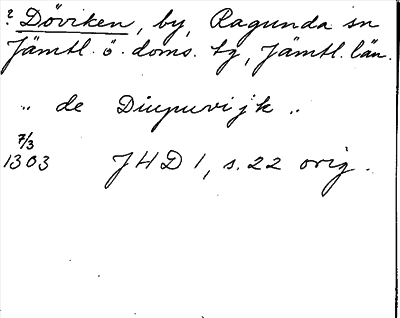 ? Döviken, by, Ragunda sn
Jämtl. ö. doms. tg, Jämtl. län.
„ de Diupuvijk „
7/3
1303 JHD 1, s. 22 orig.